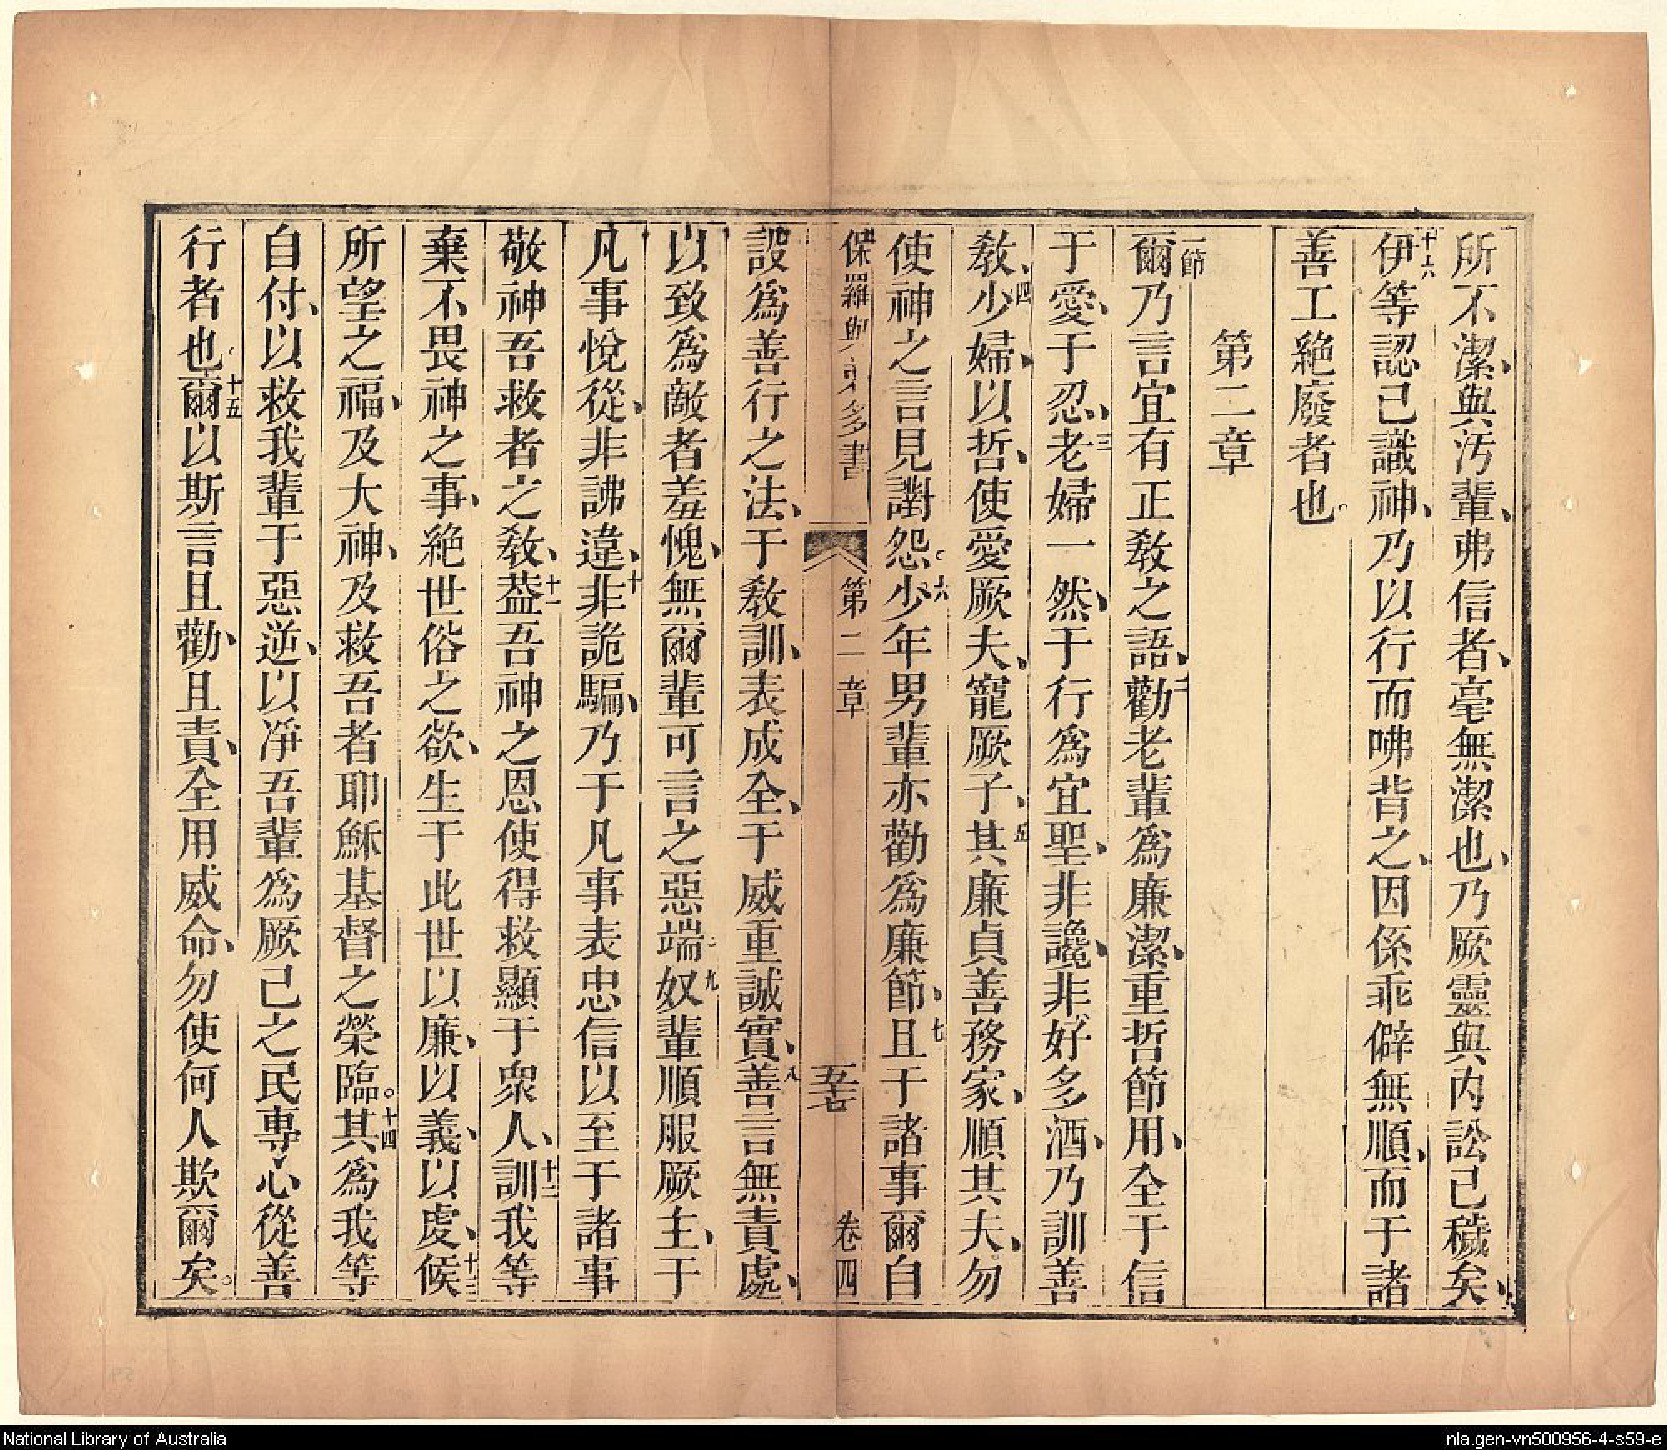 所不潔、與汚輩、弗信者、毫無潔也、乃厥靈與內訟已穢矣、
十六伊等認已識神、乃以行而咈背之、因係乖僻無順、而于諸
善工絶廢者也。
第二章
一節爾乃言宜有正敎之語、二勸老輩爲廉潔、重哲節用、全于信
于愛、于忍、三老婦一然、于行爲宜聖、非讒、非好多酒、乃訓善
敎、四少婦、以哲、使愛厥夫、寵厥子、五其廉貞善務家、順其夫、勿
使神之言見讟怨。六少年男輩亦勸爲廉節、七且于諸事爾自
保羅與弟多書 第二章 五十七 卷四
設爲善行之法、于敎訓、表成全、于威重誠實、八善言無責處、
以致爲敵者羞愧、無爾輩可言之惡端、九奴輩順服厥主、于
凡事悅從、非諫違、十非詭騙、乃于凡事表忠信以至于諸事
敬神吾救者之敎、十一葢吾神之恩使得救顯于衆人、十二訓我等
棄不畏神之事、絶世俗之欲、生于此世以廉、以義、以虔、十三候
所望之福、及大神、及救吾者耶穌基督之榮臨。十四其爲我等
自付、以救我輩于惡逆、以凈吾輩爲厥己之民專心從善
行者也、十五爾以斯言且勸、且責、全用威命、勿使何人欺爾矣。
National Library of Australia
nla.gen-vn500956-4-s59-e